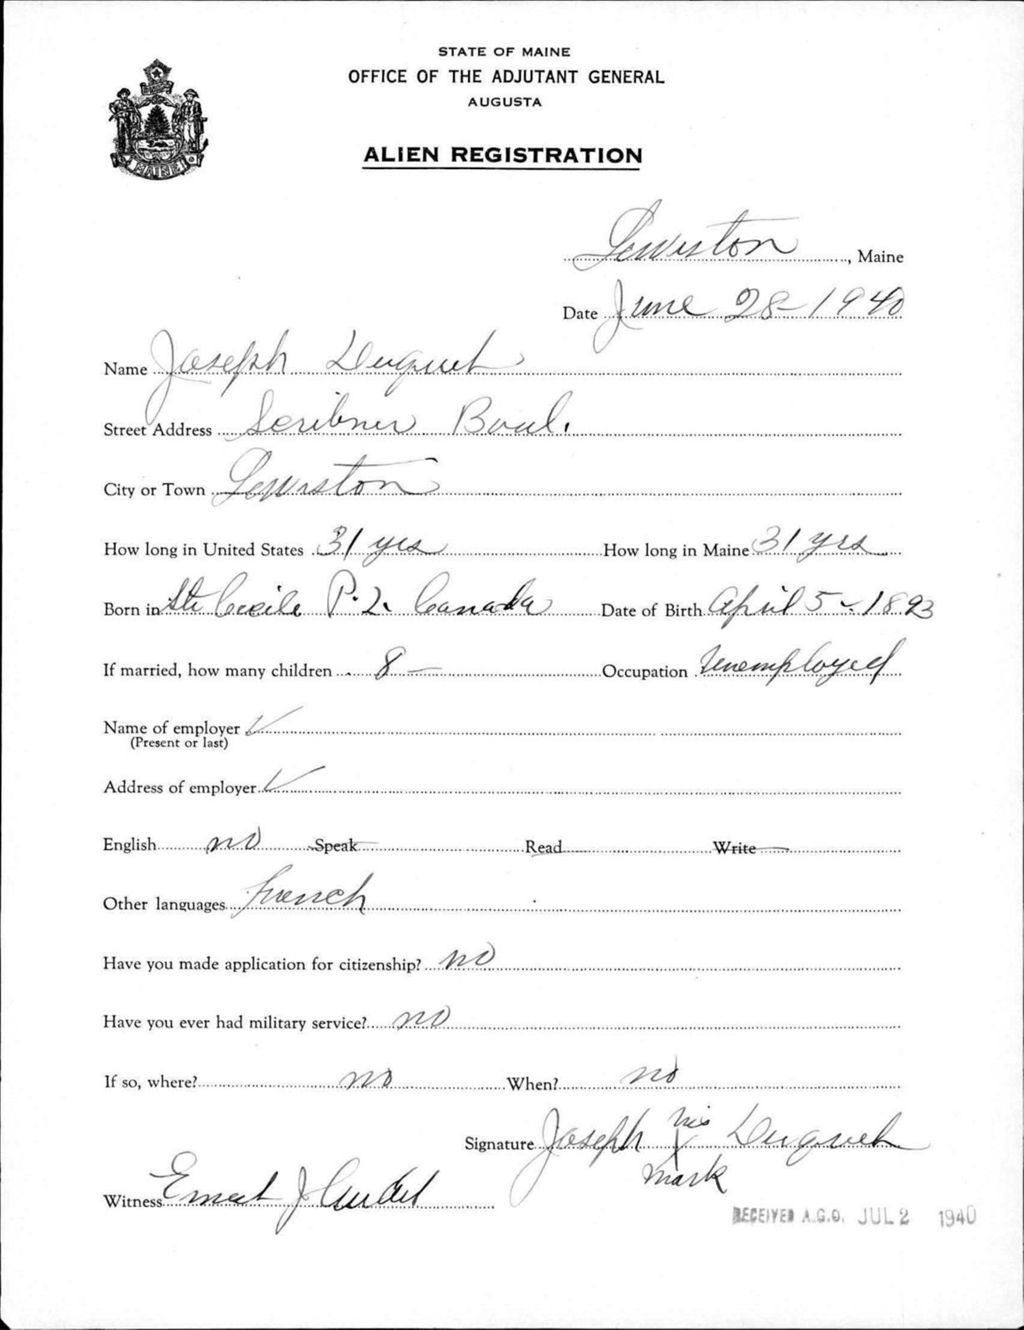 STATE OF MAINE
OFFICE OF THE ADJUTANT GENERAL
AUGUSTA
ALIEN REGISTRATION
MAINE
Lewiston, Maine
Date June 28-1940
Name Joseph Duquet
Street Address Scribner Boul.
City or Town Lewiston
How long in United States 31 yrs How long in Maine 31 yrs
Born in Ste Cecile P.Q. Canada Date of Birth April 5-1893
If married, how many children 8 - Occupation Unemployed
Name of employer ✓
(Present or last)
Address of employer ✓
English no Speak Read Write
Other languages French
Have you made application for citizenship? no
Have you ever had military service? no
If so, where? no When? no
Signature Joseph his X mark Duquet
Witness Ernest J
RECEIVED A.G.O. JUL 2 1940